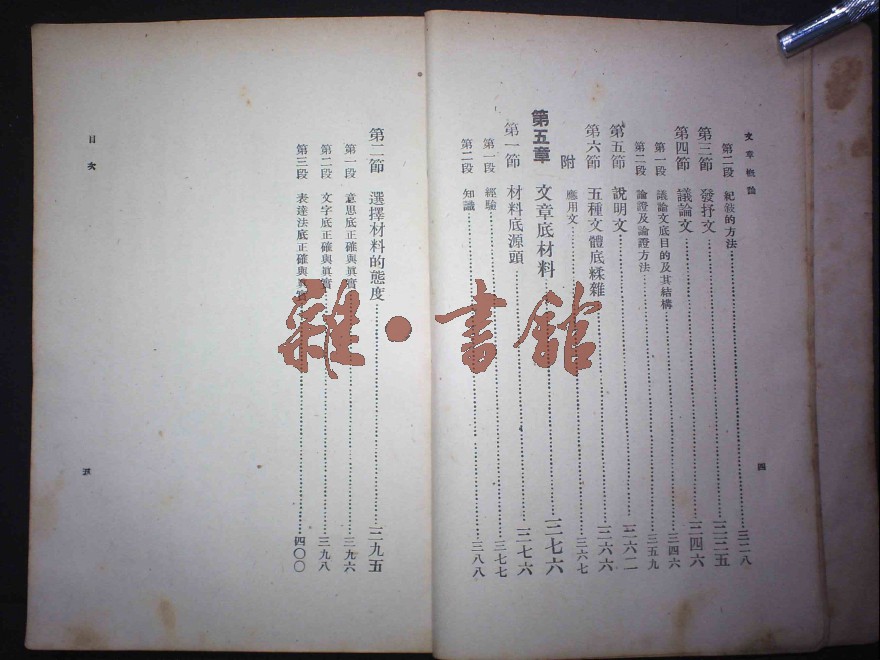 文章概論
第二段 紀敘的方法……三二八
第三節 發抒文……三三五
第四節 議論文……三四六
第一段 議論文底目的及其結構……三四六
第二段 論證及論證方法……三五九
第五節 說明文……三六二
第六節 五種文體底糅雜……三六六
附 應用文……三六七
第五章 文章底材料……三七六
第一節 材料底源頭……三七六
第一段 經驗……三七七
第二段 知識……三八八
四
目次
第二節 選擇材料的態度……三九五
第一段 意思底正確與眞實……三九六
第二段 文字底正確與眞實……三九八
第三段 表達法底正確與眞實……四〇〇
五
雜·書館